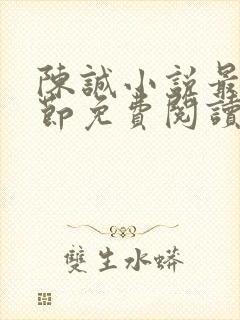 陳誠小説最
節免費閱讀
雙生水蟒